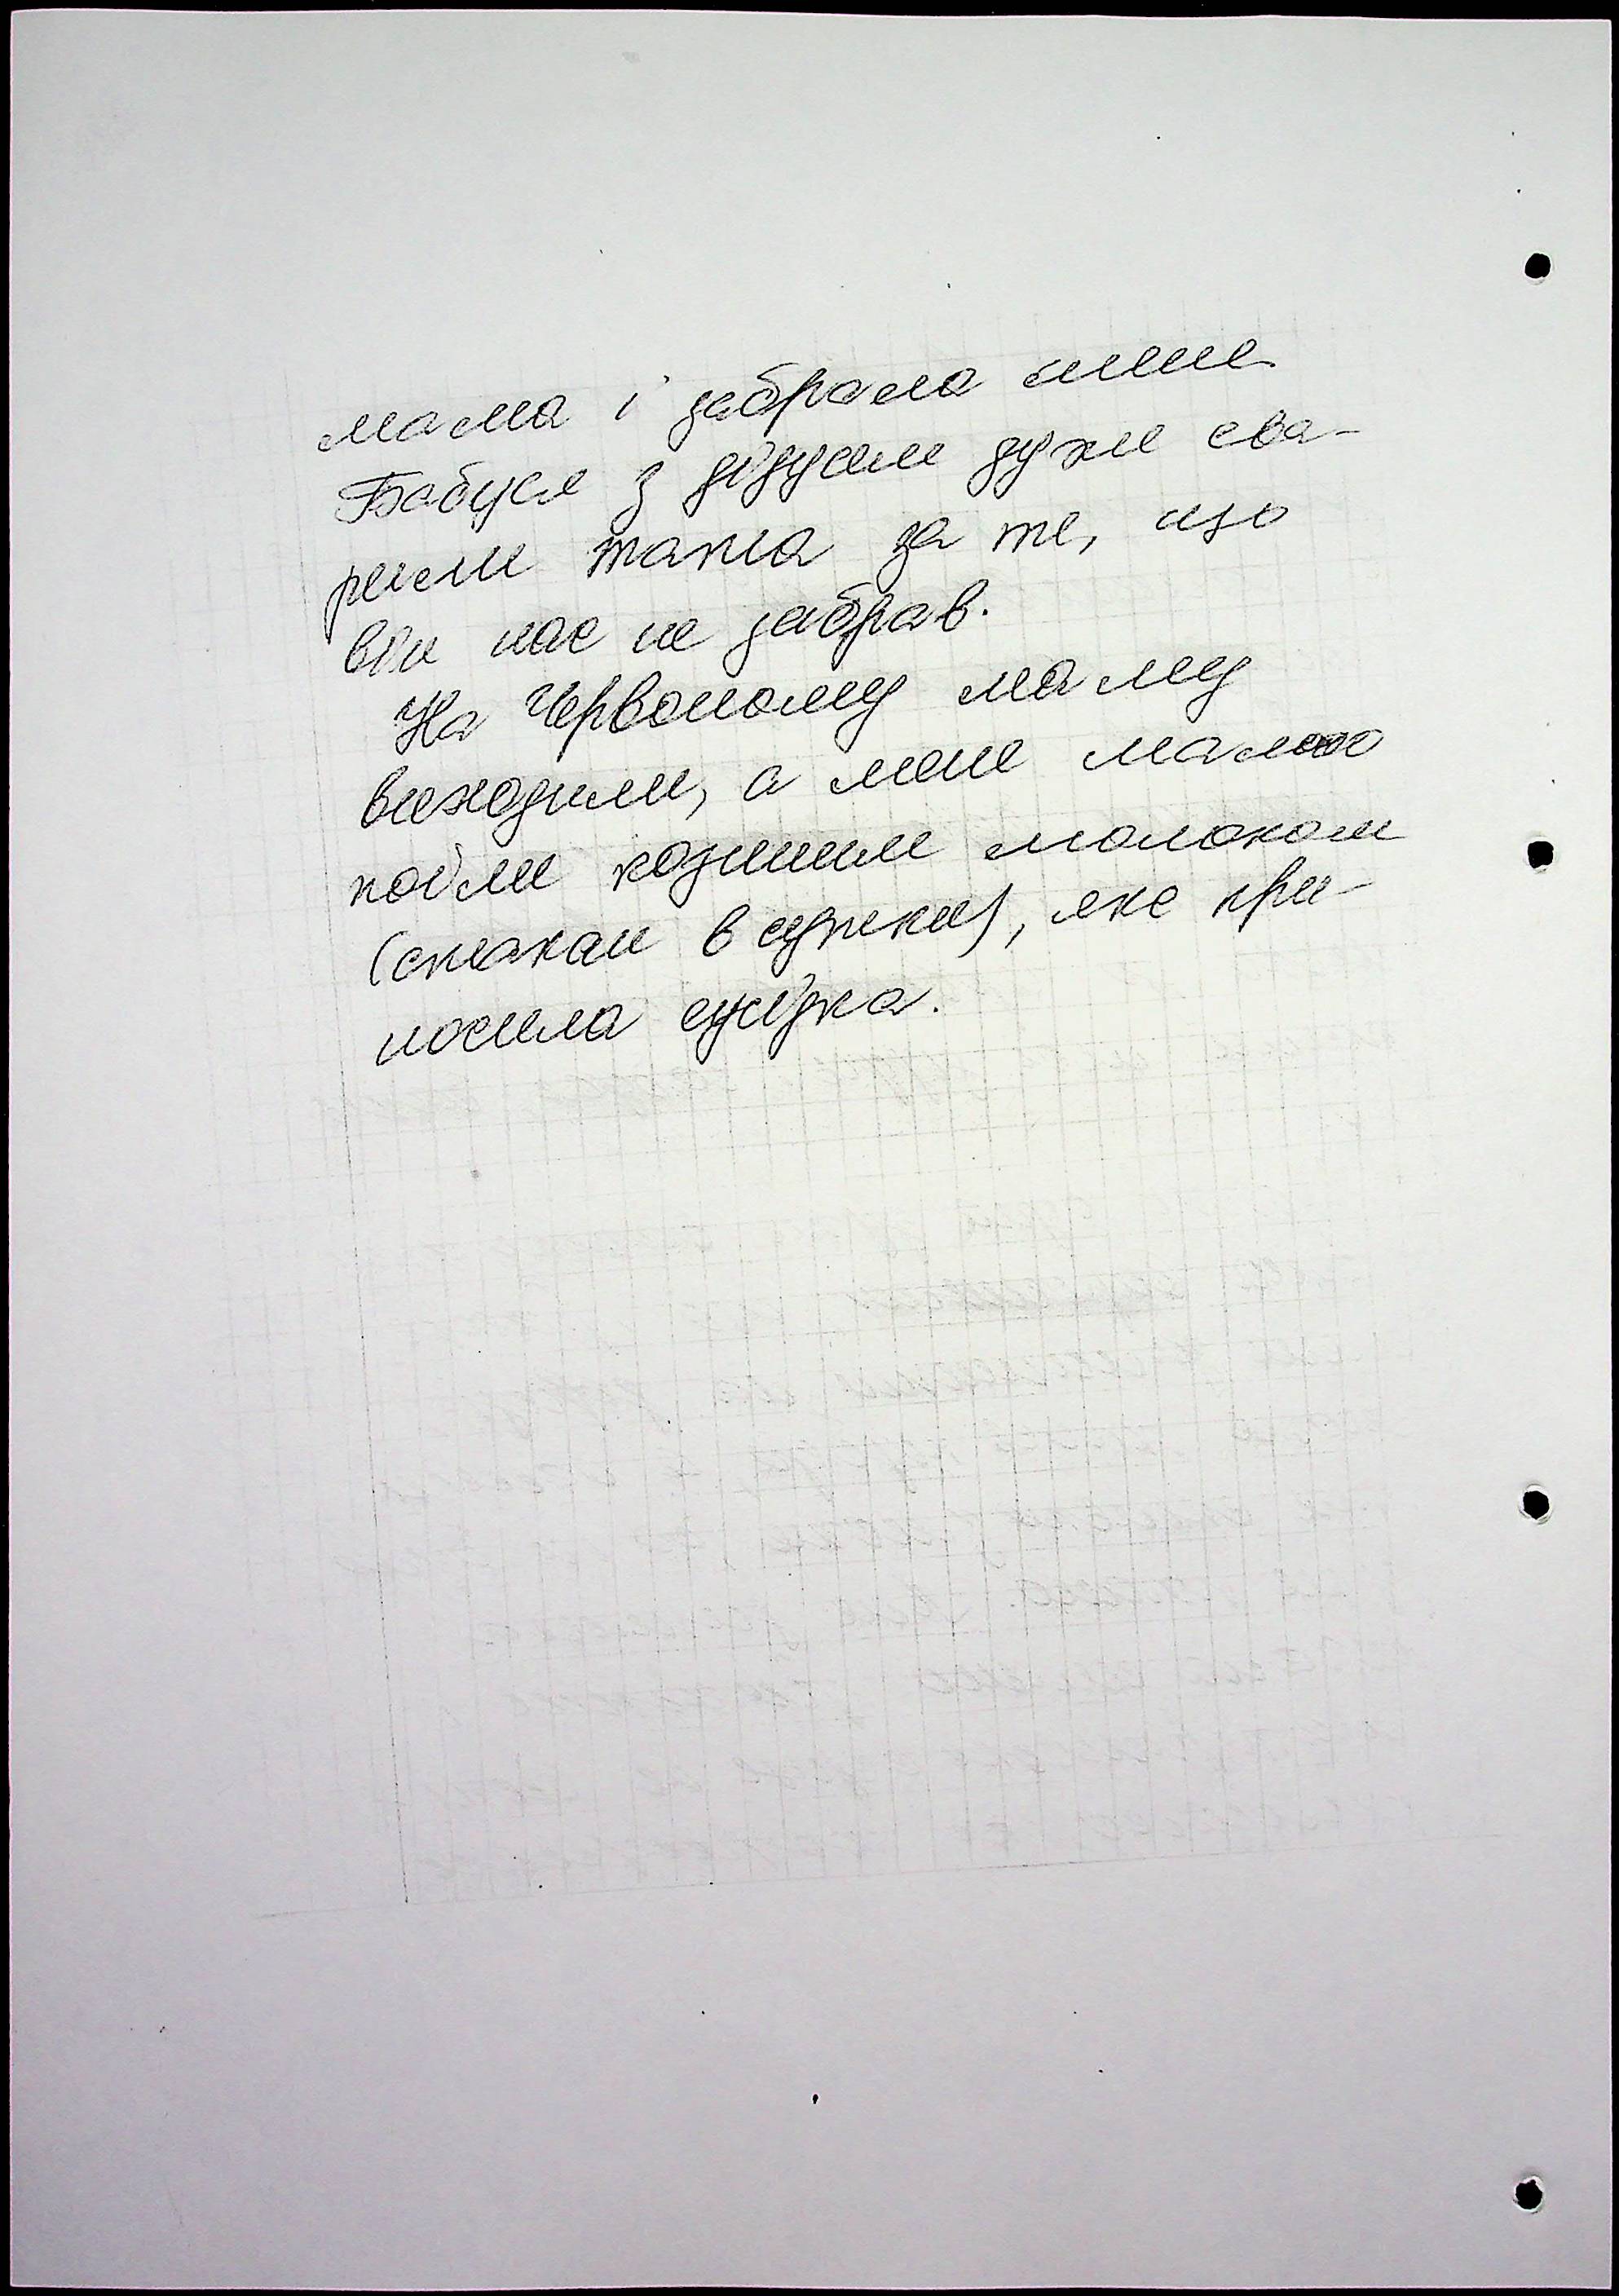 мама і забрала мене.
Бабуся з дідусем дуже сва-
рили тата за те, що
він нас не забрав.
На Червоному маму
виходили, а мене мало
поїли козиним молоком
(стакан в сутки), яке при-
носила сусідка.